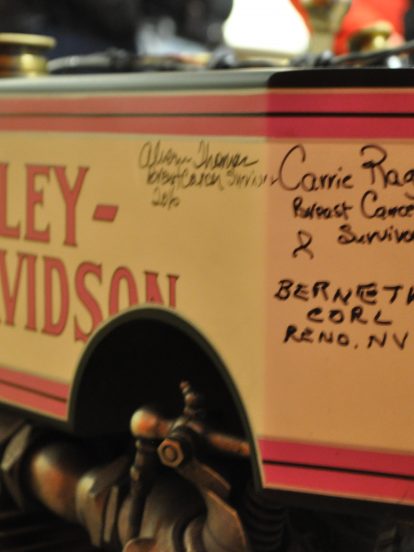 LEY-
VIDSON
Thomas
Breast Cancer Survivor
Carrie Rag
Breast Cance
Survivo
BERNETH
CORL
RENO, NV